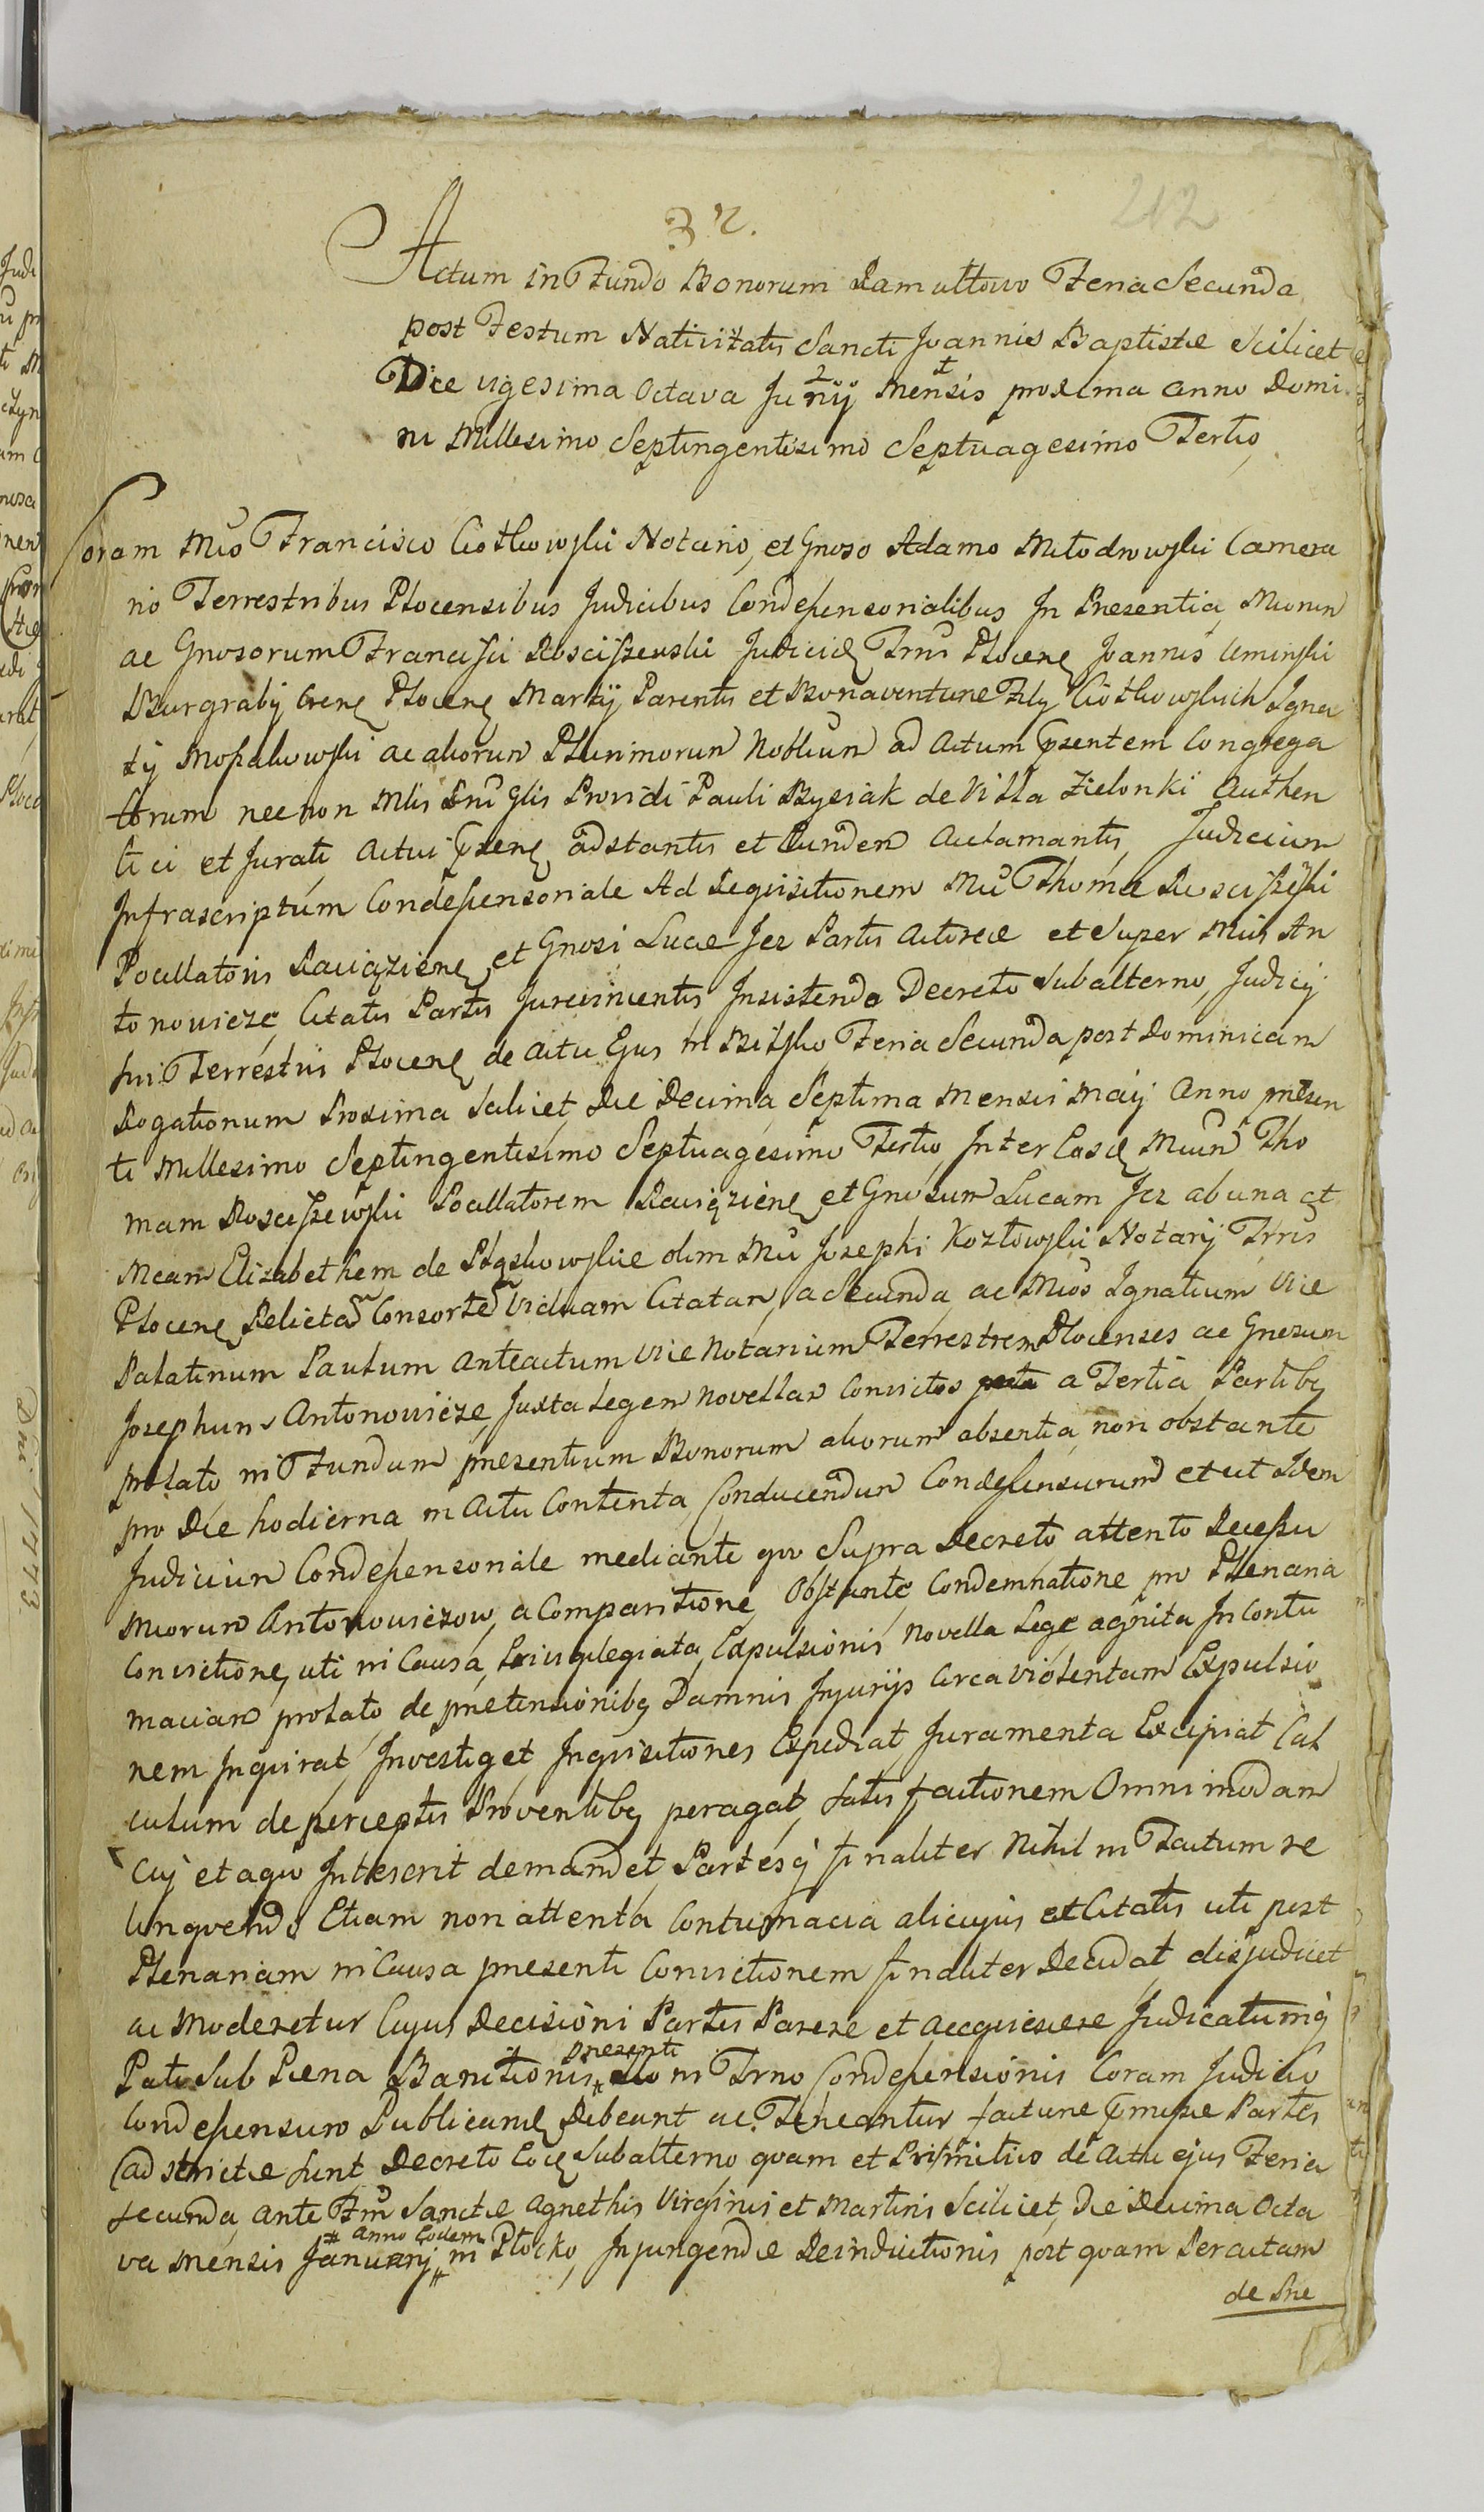 32.
212
Actum in Fundo Bonorum Ramułtowo Feria Secunda
post Festum Nativitatis Sancti Joannis Baptistæ Scilicet
Die vigesima Octava Junij Mensis proxima Anno Domi
ni Millesimo Septingentesimo Septuagesimo Tertio
Coram Mco Francisco Ciołkowski Notario, et Gnoso Adamo Młodrowski Camera
rio Terrestribus Plocensibus Judicibus Condescensorialibus In Presentia, Mcorum
ac Gnosorum Francisci Rosciszewski Judicis Trris Plocen Joannis Uminski
Burgrabij Cren Plocen Martij Parentis et Bonaventuræ Filij Ciołkowskich Igna
tij ac aliorum Plurimorum Nobilium ad Actum psentem Congrega
torum nec non Mlis Glis Providi Pauli Bysiak de Villa Zielonki Authen
tici et Jurati Actui psen adstantis et Eundem Aclamantis, Judicium
Infrascriptum Condescensoriale Ad Requisitionem Mci Thomæ Rosciszewski
Pocillatoris et Gnosi Lucæ Jez Partis Actoreæ et Super Mcis An
tonowicze Citatis Partis Jurevincentis Insistendo Decreto Subalterno, Judicij
sui Terrestris Plocen de Actu Ejus in Bielsko Feria Secunda post Dominicam
Rogationum Proxima Scilicet Die Decima Septima Mensis Maij Anno præsen
ti Millesimo Septingentesimo Septuagesimo Tertio, Inter Eosd Mcum Tho
mam Rosciszewski Pocillatorem et Gnosum Lucam Jez ab una et
Mcam Elizabethem de olim Mci Josephi Kozłowski Notarij Trris
Plocen Relictam Consortem Viduam Citatam, a Secunda ac Mcos Ignatium Vice
Palatinum Paulum Anteactum Vice Notarium Terrestrem Plocenses ac Gnosum
Josephum Antonowicze, Juxta Legem Novellam Convictos a Tertia Partibq
prolato in Fundum præsentium Bonorum aliorum absentia non obstante
pro Die hodierna in Actu Contenta, Conducendum Condescensurum et ut Idem
Judicium Condescensoriale mediante quo Supra Decreto attento Recessu
Mcorum Antonowiczow, a Comparitione, Obstante Condemnatione pro Plenaria
Convictione, uti in Causa, Privilegiata, Expulsionis Novella Lege agnita In Contu
maciam prolato, de prætensionibq Damnis Injurijs Circa Violentam Expulsio
nem Inquirat, Investiget, Inquisitiones Expediat, Juramenta Excipiat Cal
culum de perceptis Proventibq peragat, satisfactionem Omnimodam
Cuj et a quo Intererit demandet, Partesq finaliter Nihil in Factum re
linquendo Etiam non attenta Contumacia alicujus ex Citatis uti post
Plenariam in Causa præsenti Convictionem finaliter Decidat, disjudicet
ac Moderetur Cujus Decisioni Partes Parere et Accquiescere Judicatumq
Pati Sub Pæna Banitionis præsenti in Trno Condescensionis Coram Judicio
Condescensuro Publicand Debeant ac Teneantur, facturæ Partes
adstrictæ sunt Decreto Eod Subalterno, quam et Primitivo de Actu ejus Feria
secunda, ante Ftm Sanctæ Agnethis Virginis et Martiris Scilicet, Die Decima Octa
va Mensis Januarij Anno Eodem in Płocko, Injungendæ Reinductionis post quam Peractam
de Præ